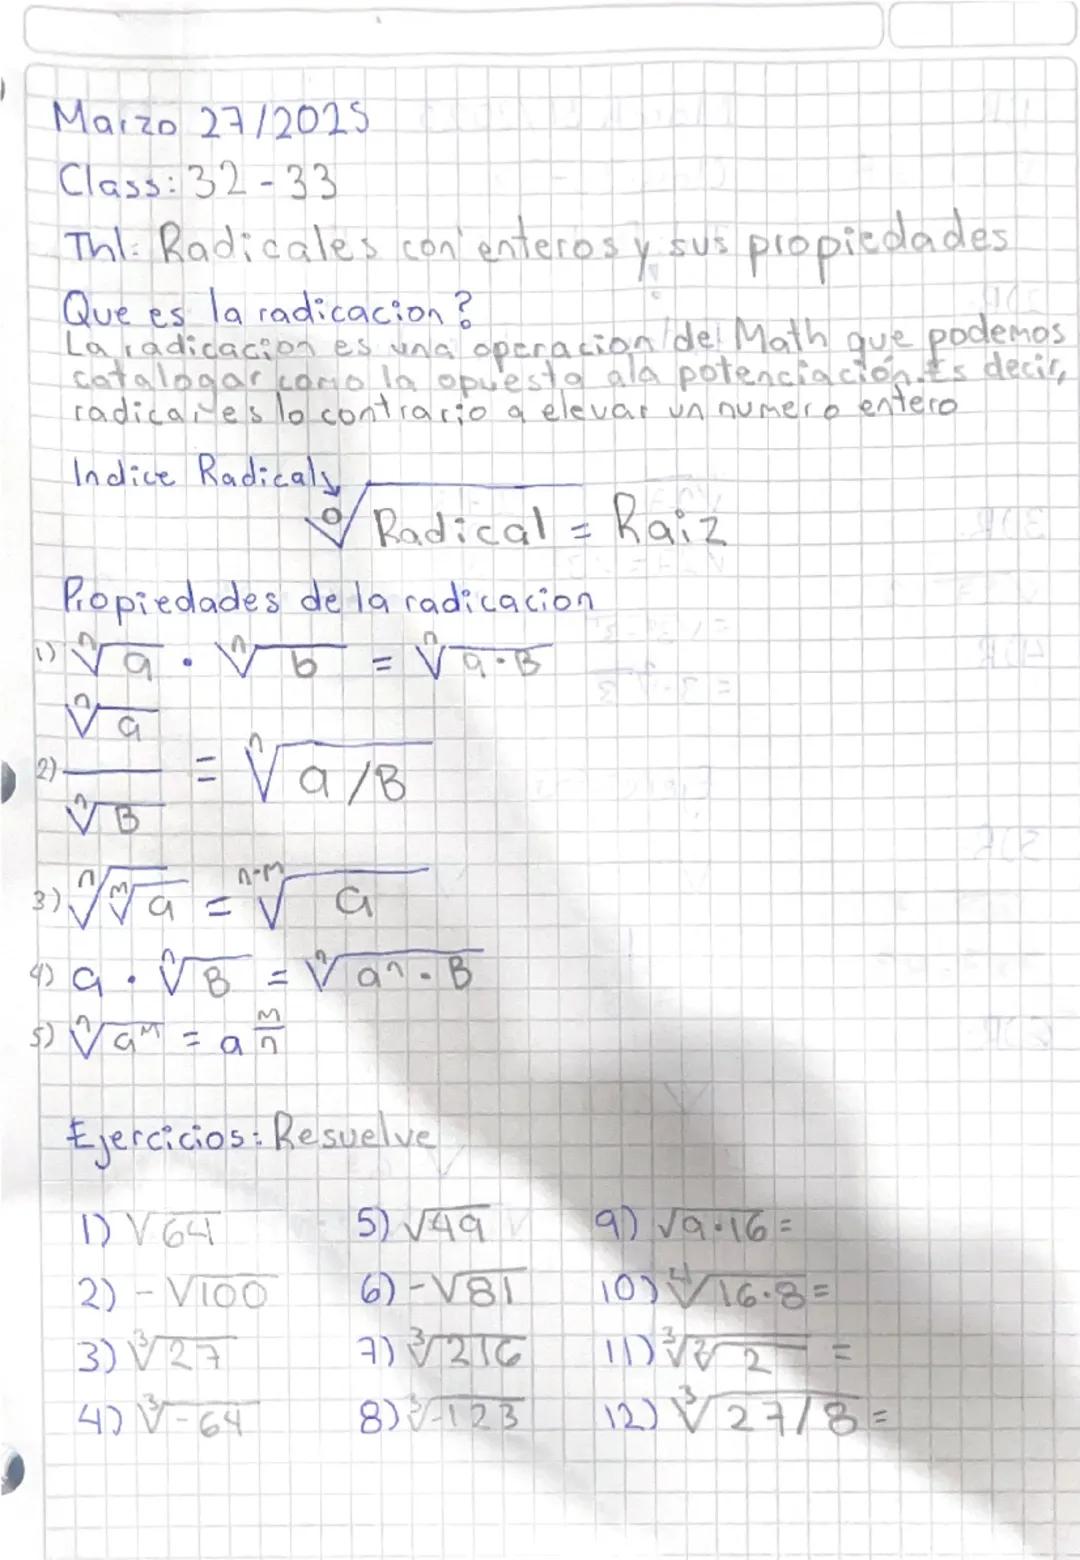 Marzo 27/2025
Class: 32 - 33
Thl: Radicales con enteros y sus propiedades
Que es la radicacion?
La radicacion es una operacion de Math que podemos
catalogar como la opuesta ala potenciación. Es decir,
radicar es lo contrario a elevar un numero entero
Indice Radical
ⁿ√Radical = Raiz
Propiedades de la radicacion
1) ⁿ√a · ⁿ√b = ⁿ√a·B
2) ⁿ√a / ⁿ√B = ⁿ√a/B
3) ⁿ√ᵐ√a = ⁿ⁻ᵐ√a
4) a · ⁿ√B = ⁿ√aⁿ · B
5) ⁿ√aᴹ = a M/n
Ejercicios: Resuelve
1) √64 5) √49 9) √9·16 =
2) -√100 6) -√81 10) ⁴√16·8 =
3) ³√27 7) ³√216 11) ³√²√2 =
4) ³√-64 8) ³√-123 12) ³√27/8 =